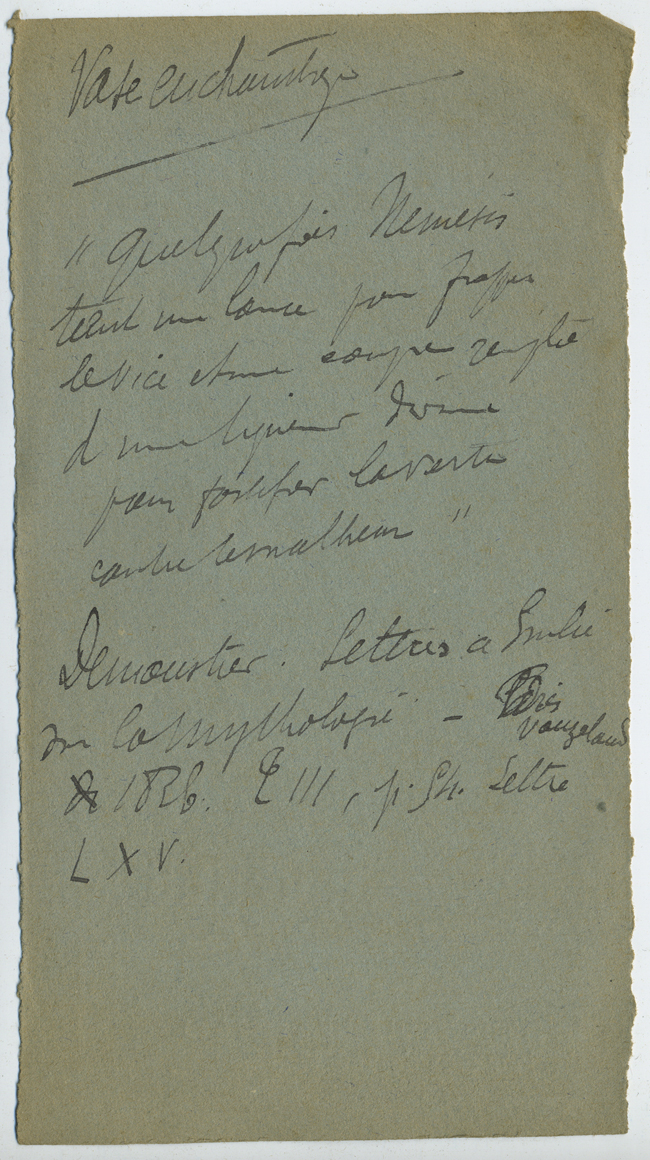 Vase enchanté
" Quelquefois Nemesis
tient une lance pour frapper
le vice et une coupe remplie
d'une liqueur divine
pour fortifier la vertu
contre le malheur "
Demoustier. Lettres a Emilie
sur la Mythologie – Paris
1826. T III, p. Lettre
LXV.